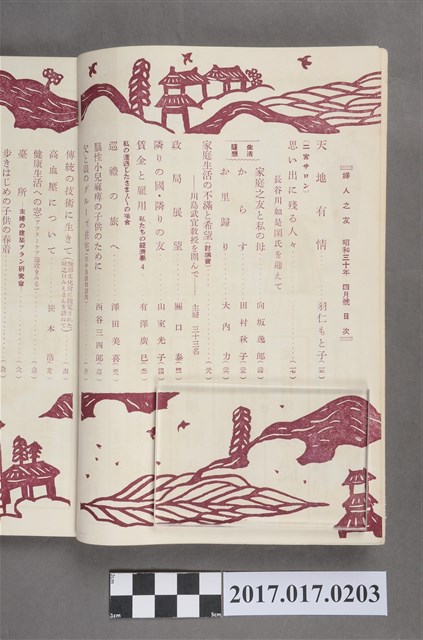 婦人之友 昭和三十年 四月號 目次
天地有情 羽仁もと子
(二宮サロン)
思い出に殘る人々
長谷川如是閑氏を迎えて
生活隨想
家庭之友と私の母 向坂逸郎
からす 田村秋子
お里歸り 大内力
家庭生活の不滿と希望(討論會)
——川島武宜教授を圍んで—— 主婦 三十三名
政局展望 關口泰
隣りの國・隣りの友 山室光子
賃金と雇用 私たちの經濟學 4 有澤廣巳
私の遭遇したさまざまの場合
巡禮の旅へ 澤田美喜
腦性小兒麻痺の子供のために 西谷三四郎
傳統の技術に生きて
高血壓について 笹本浩
健康生活への窓
臺所 主婦の建築プラン研究會
歩きはじめの子供の春着
2cm
3cm
5cm
2017.017.0203